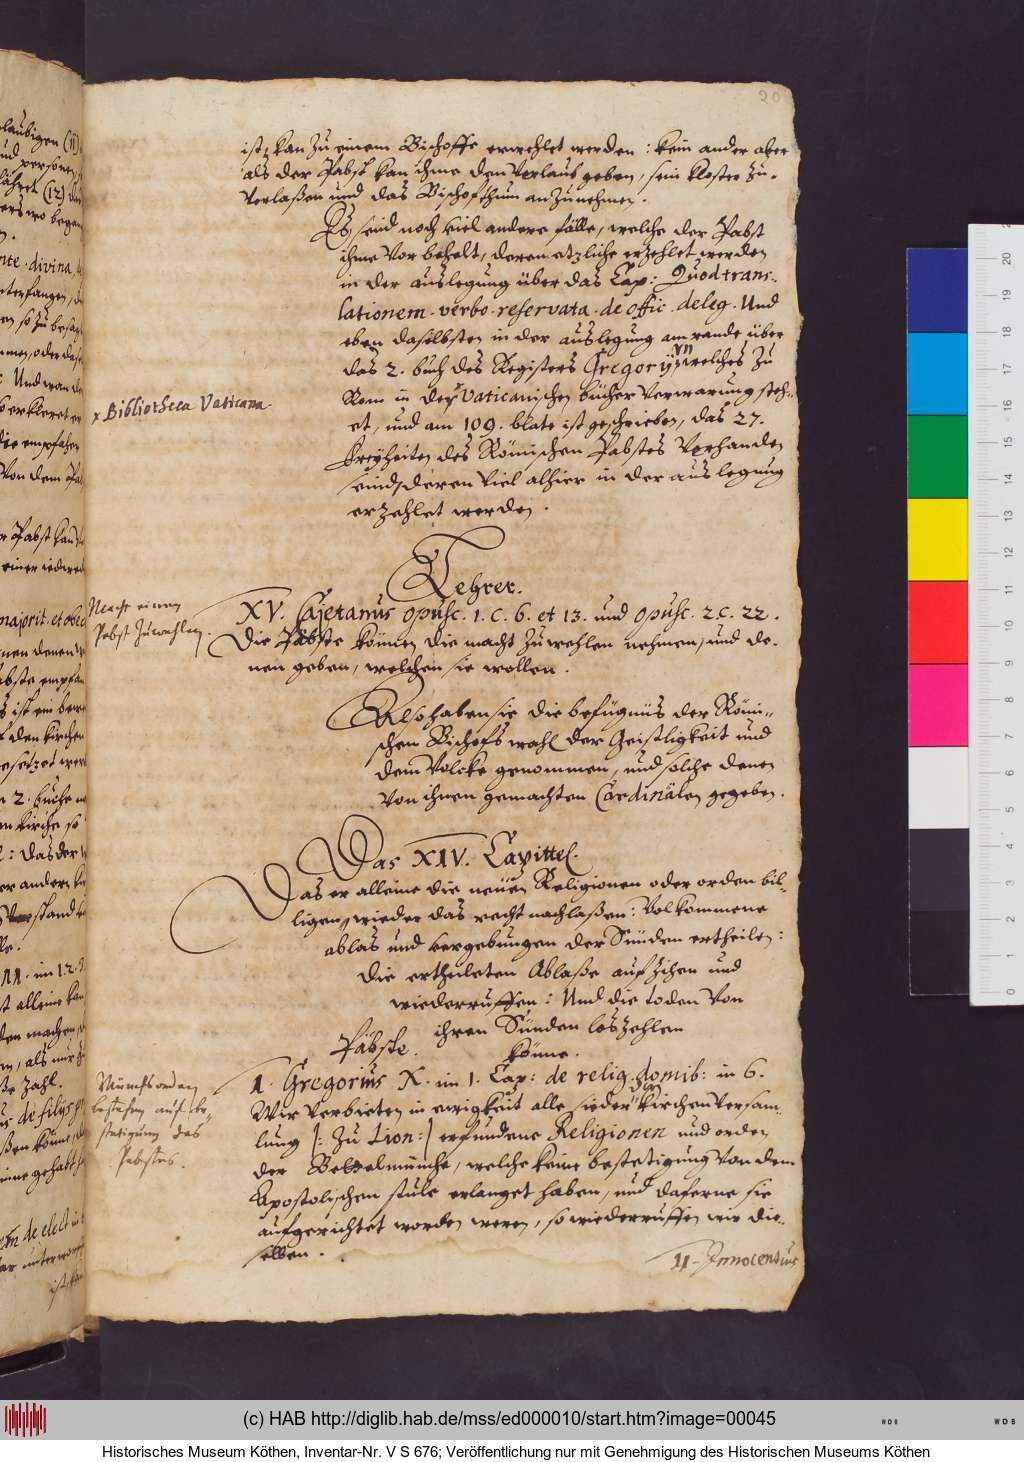 20
ist, kan zu einem Bischoffe erwehlet werden : kein ander aber
als der Pabst kan ihme den Verlaub geben, sein kloster zu-
verlaßen und das Bischofthum an zu nehmen.
Es seind noch viel andere fälle, welche der Pabst
ihme Vor behelt, deren etzliche erzehlet werden
in der auslegung über das Cap: Quod trans-
lationem. verbo. reservata. de offic. deleg. Und
eben daselbsten in der auslegung am rande über
das 2. buch des Registers Gregorÿ welches zu
x Bibliotheca Vaticana
Rom in der Vaticanischen bücher verwarung steh-
et, und am 109. blate ist geschrieben, das 27.
freyheiten des Römischen Pabstes Verhanden
sind, deren viel alhier in der auslegung
erzehlet werden.
Lehrer.
Macht einen
Pabst zuwehlen.
XV. Cajetanus opusc. 1. c. 6. et 13. und opusc. 2. c. 22.
Die Päbste können die macht zu wehlen nehmen, und de-
nen geben, welchen sie wollen.
Also haben sie die befügnüs der Römi-
schen Bischofs wahl der Geistligkeit und
dem Volcke genommen, und solche denen
von ihnen gemachten Cardinälen gegeben.
Das XIV. Capittel.
Das er alleine die neüen Religionen oder orden bil-
ligen, wieder das recht nachlaßen: Vol kommene
ablas und vergebungen der Sünden ertheilen:
Die ertheileten Ablaße auf zihen und
wiederruffen: Und die toden Von
ihren Sünden loszehlen
Päbste. könne.
1. Gregorius X. im 1. Cap: de relig. domib: in 6.
Münchsorden
bestehen auf be-
stetigung des
Pabstes.
Wir verbieten in ewigkeit alle sieder der kirchen versam-
lung |: zu Lion :| erfundene Religionen und orden
der Bettelmünche, welche keine bestetigung von dem
Apostolischen stule erlanget haben, und daferne sie
aufgerichtet worden weren, so wiederruffen wir die-
selben.
11. Innocentius
(c) HAB http://diglib.hab.de/mss/ed000010/start.htm?image=00045
Historisches Museum Köthen, Inventar-Nr. V S 676; Veröffentlichung nur mit Genehmigung des Historischen Museums Köthen